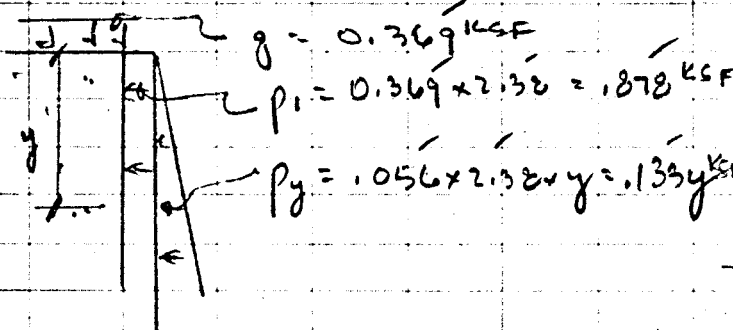 q = 0.369 KSF
P1 = 0.369 x 2.38 = .878 KSF
y
Py = .056 x 2.38 x y = .133y KSF